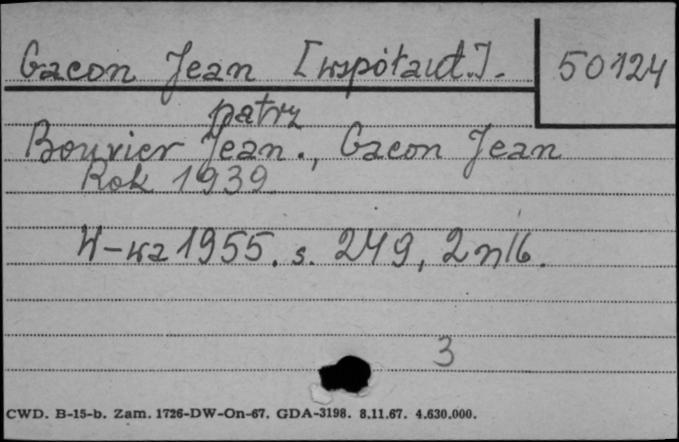 Gacon Jean [współaut.].
50124
patrz
Bouvier Jean., Gacon Jean
Rok 1939
W-wa 1955. s. 249, 2 nlb.
3
CWD. B-15-b. Zam. 1726-DW-On-67. GDA-3198. 8.11.67. 4.630.000.